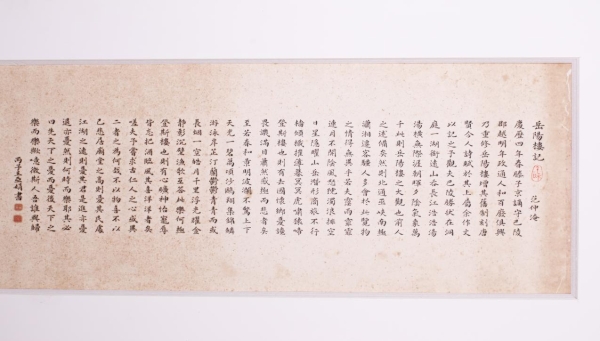 岳陽樓記 范仲淹
慶歷四年春滕子京謫守巴陵
郡越明年政通人和百廢俱興
乃重修岳陽樓增其舊制刻唐
賢今人詩賦於其上屬余作文
以記之予觀夫巴陵勝狀在洞
庭一湖銜遠山吞長江浩浩湯
湯橫無際涯朝暉夕陰氣象萬
千此則岳陽樓之大觀也前人
之述備矣然則北通巫峽南極
瀟湘遷客騷人多會於此覽物
之情得無異乎若夫霪雨霏霏
連月不開陰風怒號濁浪排空
日星隱曜山岳潛形商旅不行
檣傾楫摧薄暮冥冥虎嘯猿啼
登斯樓也則有去國懷鄉憂讒
畏譏滿目蕭然感極而悲者矣
至若春和景明波瀾不驚上下
天光一碧萬頃沙鷗翔集錦鱗
游泳岸芷汀蘭鬱鬱青青而或
長煙一空皓月千里浮光躍金
靜影沉璧漁歌互答此樂何極
登斯樓也則有心曠神怡寵辱
皆忘把酒臨風其喜洋洋者矣
嗟夫予嘗求古仁人之心或異
二者之為何哉不以物喜不以
己悲居廟堂之高則憂其民處
江湖之遠則憂其君是進亦憂
退亦憂然則何時而樂耶其必
曰先天下之憂而憂後天下之
樂而樂歟噫微斯人吾誰與歸
丙子 書